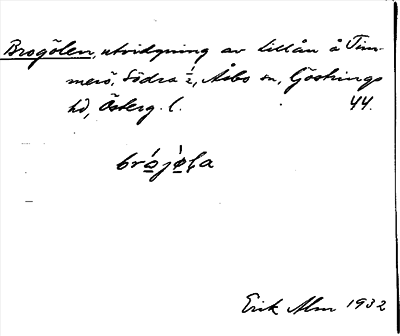 Brogölen, utvidgning av Lillån å Tim-
merö, Södra ½, Åsbo sn, Göstrings
hd, Österg. l. 44.
brójòla
Erik Alm 1932